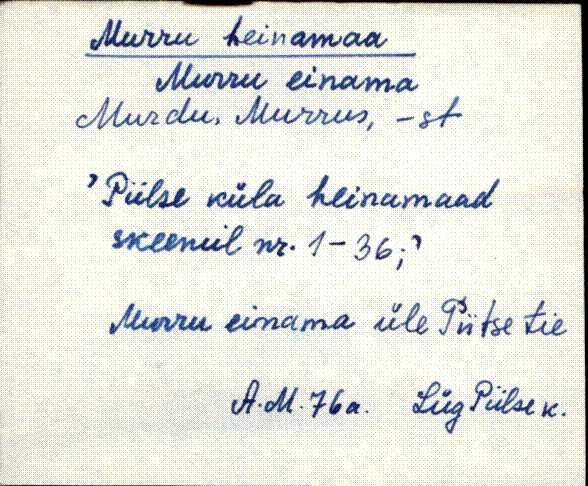 Murru heinamaa
Murru einama
Murdu, Murrus, -st
'Püilse küla heinamaad
skeemil nr. 1-36;'
Murru einama üle Püitse tie
A.M. 76a. Lüg Püilse k.